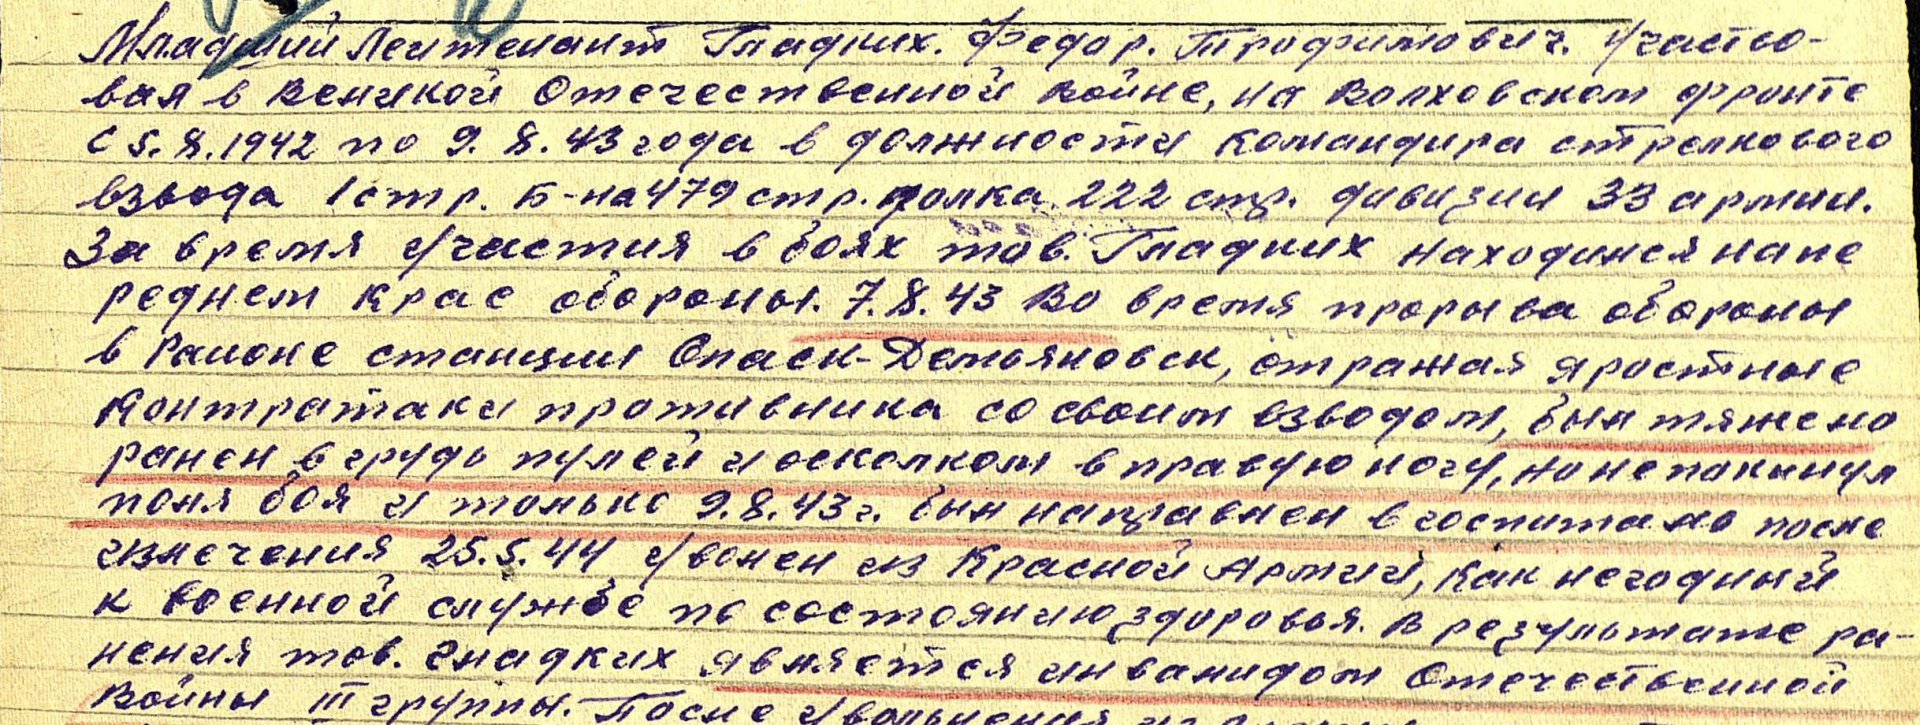 Младший Лейтенант Гладких. Федор. Трофимович. Участво-
вал в Великой Отечественной войне, на Волховском фронте
с 5.8.1942 по 9.8.43 года в должности командира стрелкового
взвода 1 стр. Б-на 479 стр. полка 222 стр. дивизии 33 армии.
За время участия в боях тов. Гладких находился на пе
реднем крае обороны. 7.8.43 Во время прорыва обороны
в районе станции Спаск-Демьяновск, отражая яростные
контратаки противника со своим взводом, был тяжело
ранен в грудь пулей и осколком в правую ногу, но не покинул
поля боя и только 9.8.43 г. был направлен в госпиталь после
излечения 25.5.44 уволен из Красной Армии, как негодный
к военной службе по состоянию здоровья. В результате ра-
нения тов. Гладких является инвалидом Отечественной
Войны III группы. После увольнения из